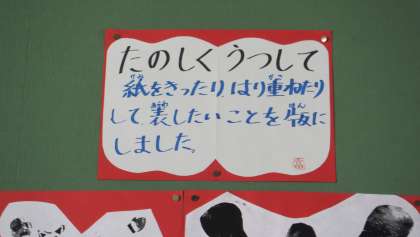 たのしく うつして
紙をきったり はり重ねたり
して、表したい ことを 版に
しました。